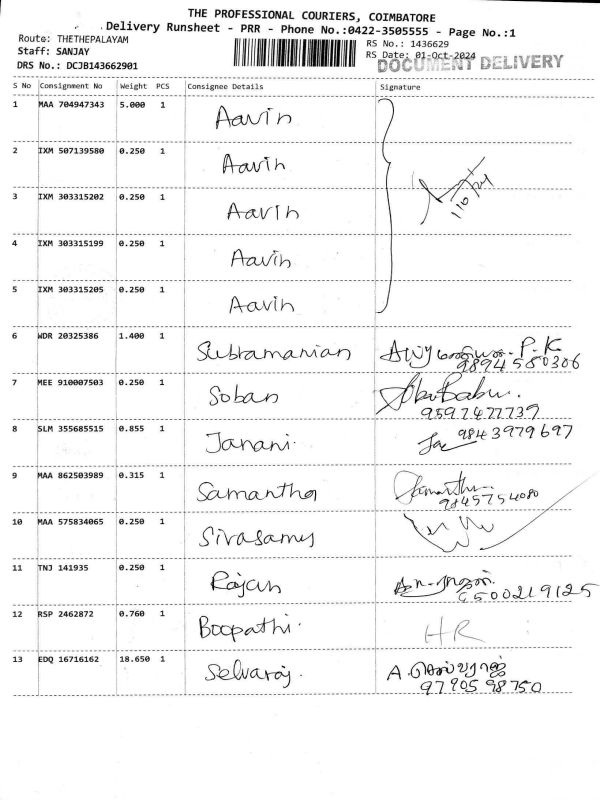 THE PROFESSIONAL COURIERS, COIMBATORE
Delivery Runsheet - PRR - Phone No.:0422-3505555 - Page No.:1
Route: THETHEPALAYAM
RS No.: 1436629
Staff: SANJAY
RS Date: 01-Oct-2024
DRS No.: DCJB143662901
DOCUMENT DELIVERY
S No Consignment No Weight PCS Consignee Details Signature
1 MAA 704947343 5.000 1 Aavin
2 IXM 507139580 0.250 1 Aavin
1/10/24
3 IXM 303315202 0.250 1 Aavin
4 IXM 303315199 0.250 1 Aavin
5 IXM 303315205 0.250 1 Aavin
6 WDR 20325386 1.400 1 Subramanian P.K
9894580306
7 MEE 910007503 0.250 1 Soban
9597477739
8 SLM 355685515 0.855 1 Janani 9843979697
9 MAA 862503989 0.315 1 Samantha
9845754080
10 MAA 575834065 0.250 1 Sivasamy
11 TNJ 141935 0.250 1 Rajan
6500219125
12 RSP 2462872 0.760 1 Boopathi HR
13 EDQ 16716162 18.650 1 Selvaraj A. செல்வராஜ்
9790598750